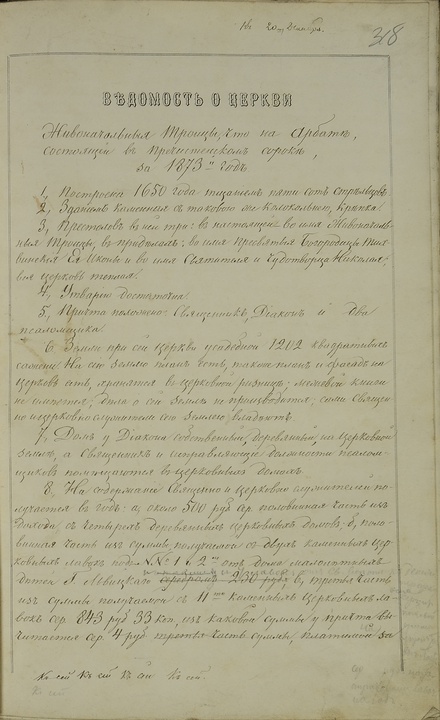 318
ВѢДОМОСТЬ О ЦЕРКВИ
Живоначальныя Троицы, что на Арбатѣ,
состоящей въ Пречистенскомъ сорокѣ,
за 1873й годъ
1, Построена 1650 года тщаніемъ пяти сотъ стрѣльцовъ
2, Зданіемъ каменная съ таковою же колокольнею, крѣпка.
3, Престоловъ въ ней три: въ настоящей во имя Живоначаль-
ныя Троицы, въ придѣлахъ: во имя Пресвятыя Богородицы Тих-
винскія Ея Иконы и во имя Святителя и Чудотворца Николая,
вся церковь теплая.
4, Утварью достаточна.
5, Причта положено: Священникъ, Діаконъ и два
псаломщика.
6, Земли при сей Церкви усадебной 1202 квадратныхъ
сажени. На сію землю планъ есть, также планъ и фасадъ на
церковь есть, хранятся въ церковной ризницѣ; межевой книги
не имѣется; дѣла о сей землѣ не производится; сами Священ-
но и церковнослужители сею землею владѣютъ.
7, Домъ у Діакона собственный, деревянный, на церковной
землѣ, а Священникъ и исправляющіе должность псалом-
щиковъ помѣщаются въ церковныхъ домахъ.
8, На содержаніе Священно и церковно служителей по-
лучается въ годъ: а, около 500 руб. ср. половинная часть изъ
дохода, съ четырехъ деревянныхъ церковныхъ домовъ; б, поло-
винная часть изъ суммы, получаемой съ двухъ каменныхъ цер-
ковныхъ лавокъ подъ №№ 1 и 2мъ отъ дома малолѣтныхъ
дѣтей Г. Левицкаго 230 руб; в, третья часть
изъ суммы получаемой съ 11ти каменныхъ церковныхъ ла-
вокъ сер. 843 руб 33 коп, изъ каковой суммы у причта вы-
читается сер. 4 руб третья часть суммы, платимой за